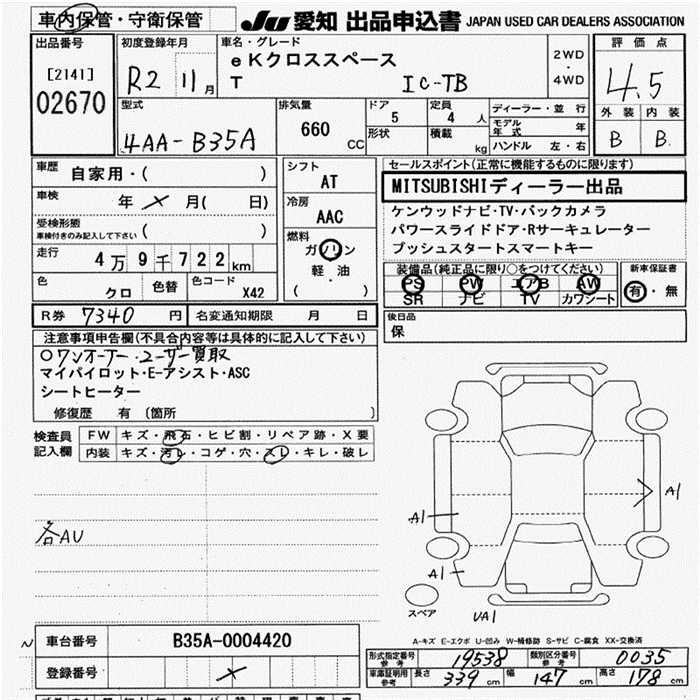 車内保管・守衛保管
JU 愛知 出品申込書 JAPAN USED CAR DEALERS ASSOCIATION
出品番号
[2141]
02670
初度登録年月
R2 11月
車名・グレード
eKクロススペース
T IC-TB
2WD
・
4WD
評価点
4.5
外装 内装
B B
型式
4AA-B35A
排気量
660
CC
ドア
5
形状
定員
4人
積載
kg
ディーラー・並行
モデル年式 年
ハンドル 左・右
車歴
自家用・( )
車検
年 月( 日)
受検形態
車検付きのみ記入して下さい ( )
走行
4万9千722km
色
クロ
色替
色コード
X42
シフト
AT
冷房
AAC
燃料
ガソリン
軽・油
( )
セールスポイント(正常に機能するものに限ります)
MITSUBISHIディーラー出品
ケンウッドナビ・TV・バックカメラ
パワースライドドア・Rサーキュレーター
プッシュスタートスマートキー
装備品(純正品に限り○をつけてください)
PS PW エアB AW
SR ナビ TV カワシート
新車保証書
有・無
R券 7340円
名変通知期限 月 日
後日品
保
注意事項申告欄(不具合内容等は具体的に記入して下さい)
○ワンオーナー・ユーザー買取
マイパイロット・E-アシスト・ASC
シートヒーター
修復歴 有 〔箇所 〕
検査員
記入欄
FW キズ・飛石・ヒビ割・リペア跡・X要
内装 キズ・汚レ・コゲ・穴・スレ・キレ・破レ
各AU
A1
A1
A1
UA1
スペア
A-キズ E-エクボ U-凹み W-補修跡 S-サビ C-腐食 XX-交換済
車台番号
B35A-0004420
登録番号
形式指定番号
参考
19538
類別区分番号
参考
0035
車庫証明用
参考
長さ 339cm
幅 147cm
高さ 178cm